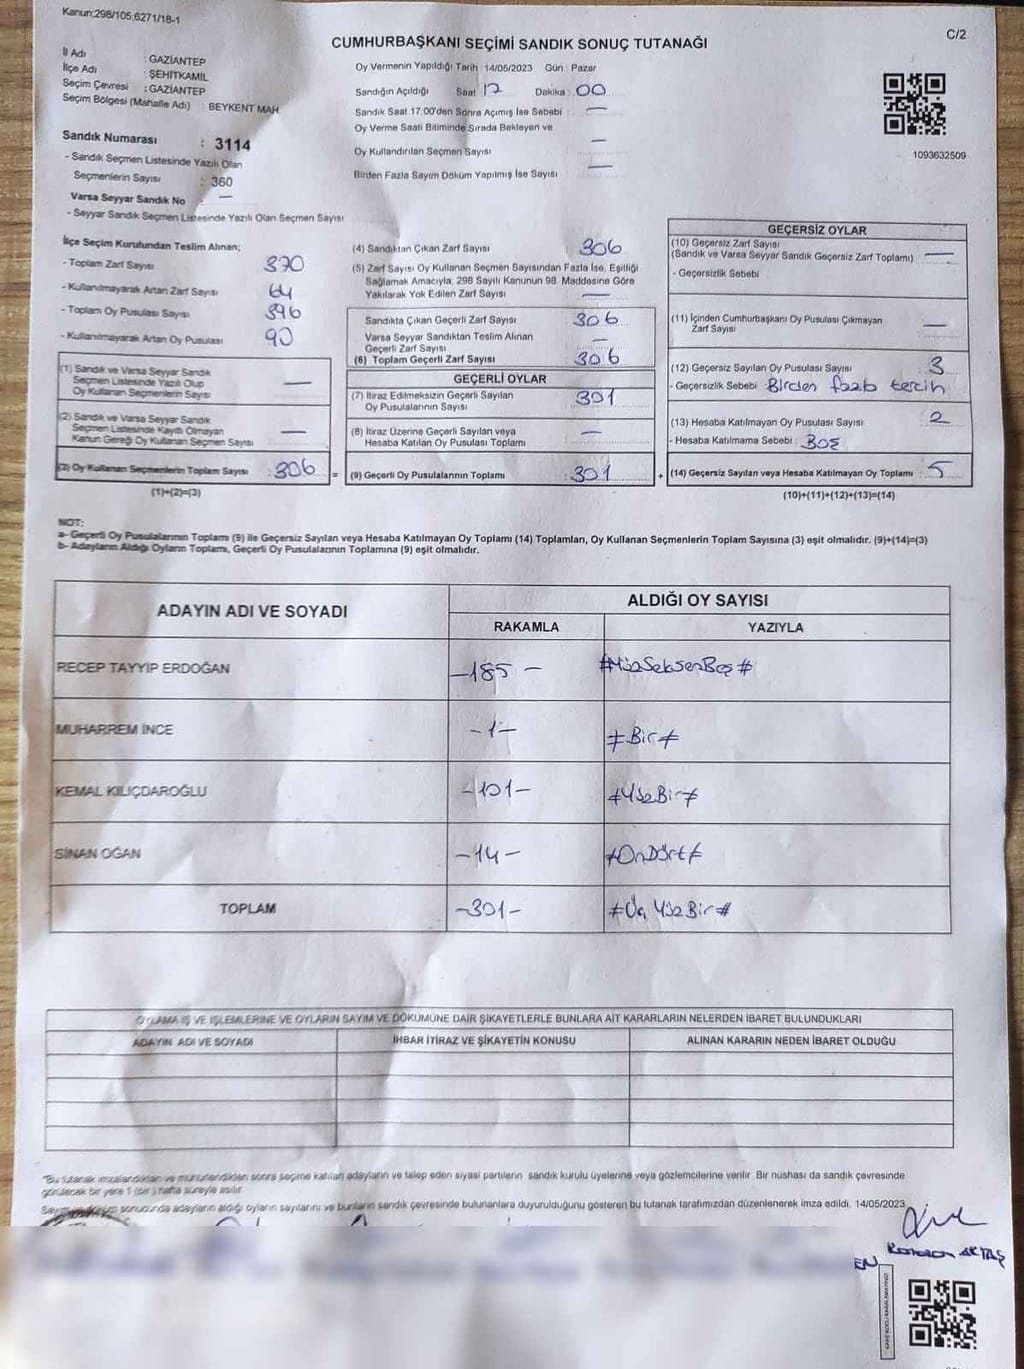 Kanun:298/105,6271/18-1
C/2
CUMHURBAŞKANI SEÇİMİ SANDIK SONUÇ TUTANAĞI
İl Adı : GAZİANTEP
İlçe Adı : ŞEHİTKAMİL
Seçim Çevresi : GAZİANTEP
Seçim Bölgesi (Mahalle Adı) : BEYKENT MAH
Oy Vermenin Yapıldığı Tarih 14/05/2023 Gün : Pazar
Sandığın Açıldığı Saat 17 Dakika : 00
Sandık Saat 17.00'den Sonra Açımış İse Sebebi : —
Oy Verme Saati Bitiminde Sırada Bekleyen ve
Oy Kullandırılan Seçmen Sayısı —
Birden Fazla Sayım Döküm Yapılmış İse Sayısı —
1093632509
Sandık Numarası : 3114
- Sandık Seçmen Listesinde Yazılı Olan
Seçmenlerin Sayısı : 360
Varsa Seyyar Sandık No —
- Seyyar Sandık Seçmen Listesinde Yazılı Olan Seçmen Sayısı
İlçe Seçim Kurulundan Teslim Alınan;
- Toplam Zarf Sayısı 370
- Kullanılmayarak Artan Zarf Sayısı 64
- Toplam Oy Pusulası Sayısı 396
- Kullanılmayarak Artan Oy Pusulası 90
(1) Sandık ve Varsa Seyyar Sandık
Seçmen Listesinde Yazılı Olup
Oy Kullanan Seçmenlerin Sayısı —
(2) Sandık ve Varsa Seyyar Sandık
Seçmen Listesinde Kaydı Olmayan
Kanun Gereği Oy Kullanan Seçmen Sayısı —
(3) Oy Kullanan Seçmenlerin Toplam Sayısı : 306 =
(1)+(2)=(3)
(4) Sandıktan Çıkan Zarf Sayısı 306
(5) Zarf Sayısı Oy Kullanan Seçmen Sayısından Fazla İse, Eşitliği
Sağlamak Amacıyla, 298 Sayılı Kanunun 98. Maddesine Göre
Yakılarak Yok Edilen Zarf Sayısı —
Sandıkta Çıkan Geçerli Zarf Sayısı 306
Varsa Seyyar Sandıktan Teslim Alınan
Geçerli Zarf Sayısı —
(6) Toplam Geçerli Zarf Sayısı 306
GEÇERLİ OYLAR
(7) İtiraz Edilmeksizin Geçerli Sayılan
Oy Pusulalarının Sayısı 301
(8) İtiraz Üzerine Geçerli Sayılan veya
Hesaba Katılan Oy Pusulası Toplamı —
(9) Geçerli Oy Pusulalarının Toplamı : 301 +
GEÇERSİZ OYLAR
(10) Geçersiz Zarf Sayısı
(Sandık ve Varsa Seyyar Sandık Geçersiz Zarf Toplamı) —
- Geçersizlik Sebebi
(11) İçinden Cumhurbaşkanı Oy Pusulası Çıkmayan
Zarf Sayısı —
(12) Geçersiz Sayılan Oy Pusulası Sayısı 3
- Geçersizlik Sebebi Birden fazla tercih
(13) Hesaba Katılmayan Oy Pusulası Sayısı 2
- Hesaba Katılmama Sebebi : BOŞ
(14) Geçersiz Sayılan veya Hesaba Katılmayan Oy Toplamı : 5
(10)+(11)+(12)+(13)=(14)
NOT:
a- Geçerli Oy Pusulalarının Toplamı (9) ile Geçersiz Sayılan veya Hesaba Katılmayan Oy Toplamı (14) Toplamları, Oy Kullanan Seçmenlerin Toplam Sayısına (3) eşit olmalıdır. (9)+(14)=(3)
b- Adayların Aldığı Oyların Toplamı, Geçerli Oy Pusulalarının Toplamına (9) eşit olmalıdır.
ADAYIN ADI VE SOYADI
ALDIĞI OY SAYISI
RAKAMLA YAZIYLA
RECEP TAYYİP ERDOĞAN -185- #YüzSeksenBeş#
MUHARREM İNCE -1- #Bir#
KEMAL KILIÇDAROĞLU -101- #YüzBir#
SİNAN OĞAN -14- #OnDört#
TOPLAM -301- #Üç YüzBir#
OYLAMA İŞ VE İŞLEMLERİNE VE OYLARIN SAYIM VE DÖKÜMÜNE DAİR ŞİKAYETLERLE BUNLARA AİT KARARLARIN NELERDEN İBARET BULUNDUKLARI
ADAYIN ADI VE SOYADI İHBAR İTİRAZ VE ŞİKAYETİN KONUSU ALINAN KARARIN NEDEN İBARET OLDUĞU
"Bu tutanak imzalandıktan ve mühürlendikten sonra seçime katılan adayların ve talep eden siyasi partilerin sandık kurulu üyelerine veya gözlemcilerine verilir. Bir nüshası da sandık çevresinde
görülecek bir yere 1 (bir) hafta süreyle asılır.
Sayım ve döküm sonucunda adayların aldığı oyların sayılarını ve bunların sandık çevresinde bulunanlara duyurulduğunu gösteren bu tutanak tarafımızdan düzenlenerek imza edildi. 14/05/2023
AKTAŞ
EN